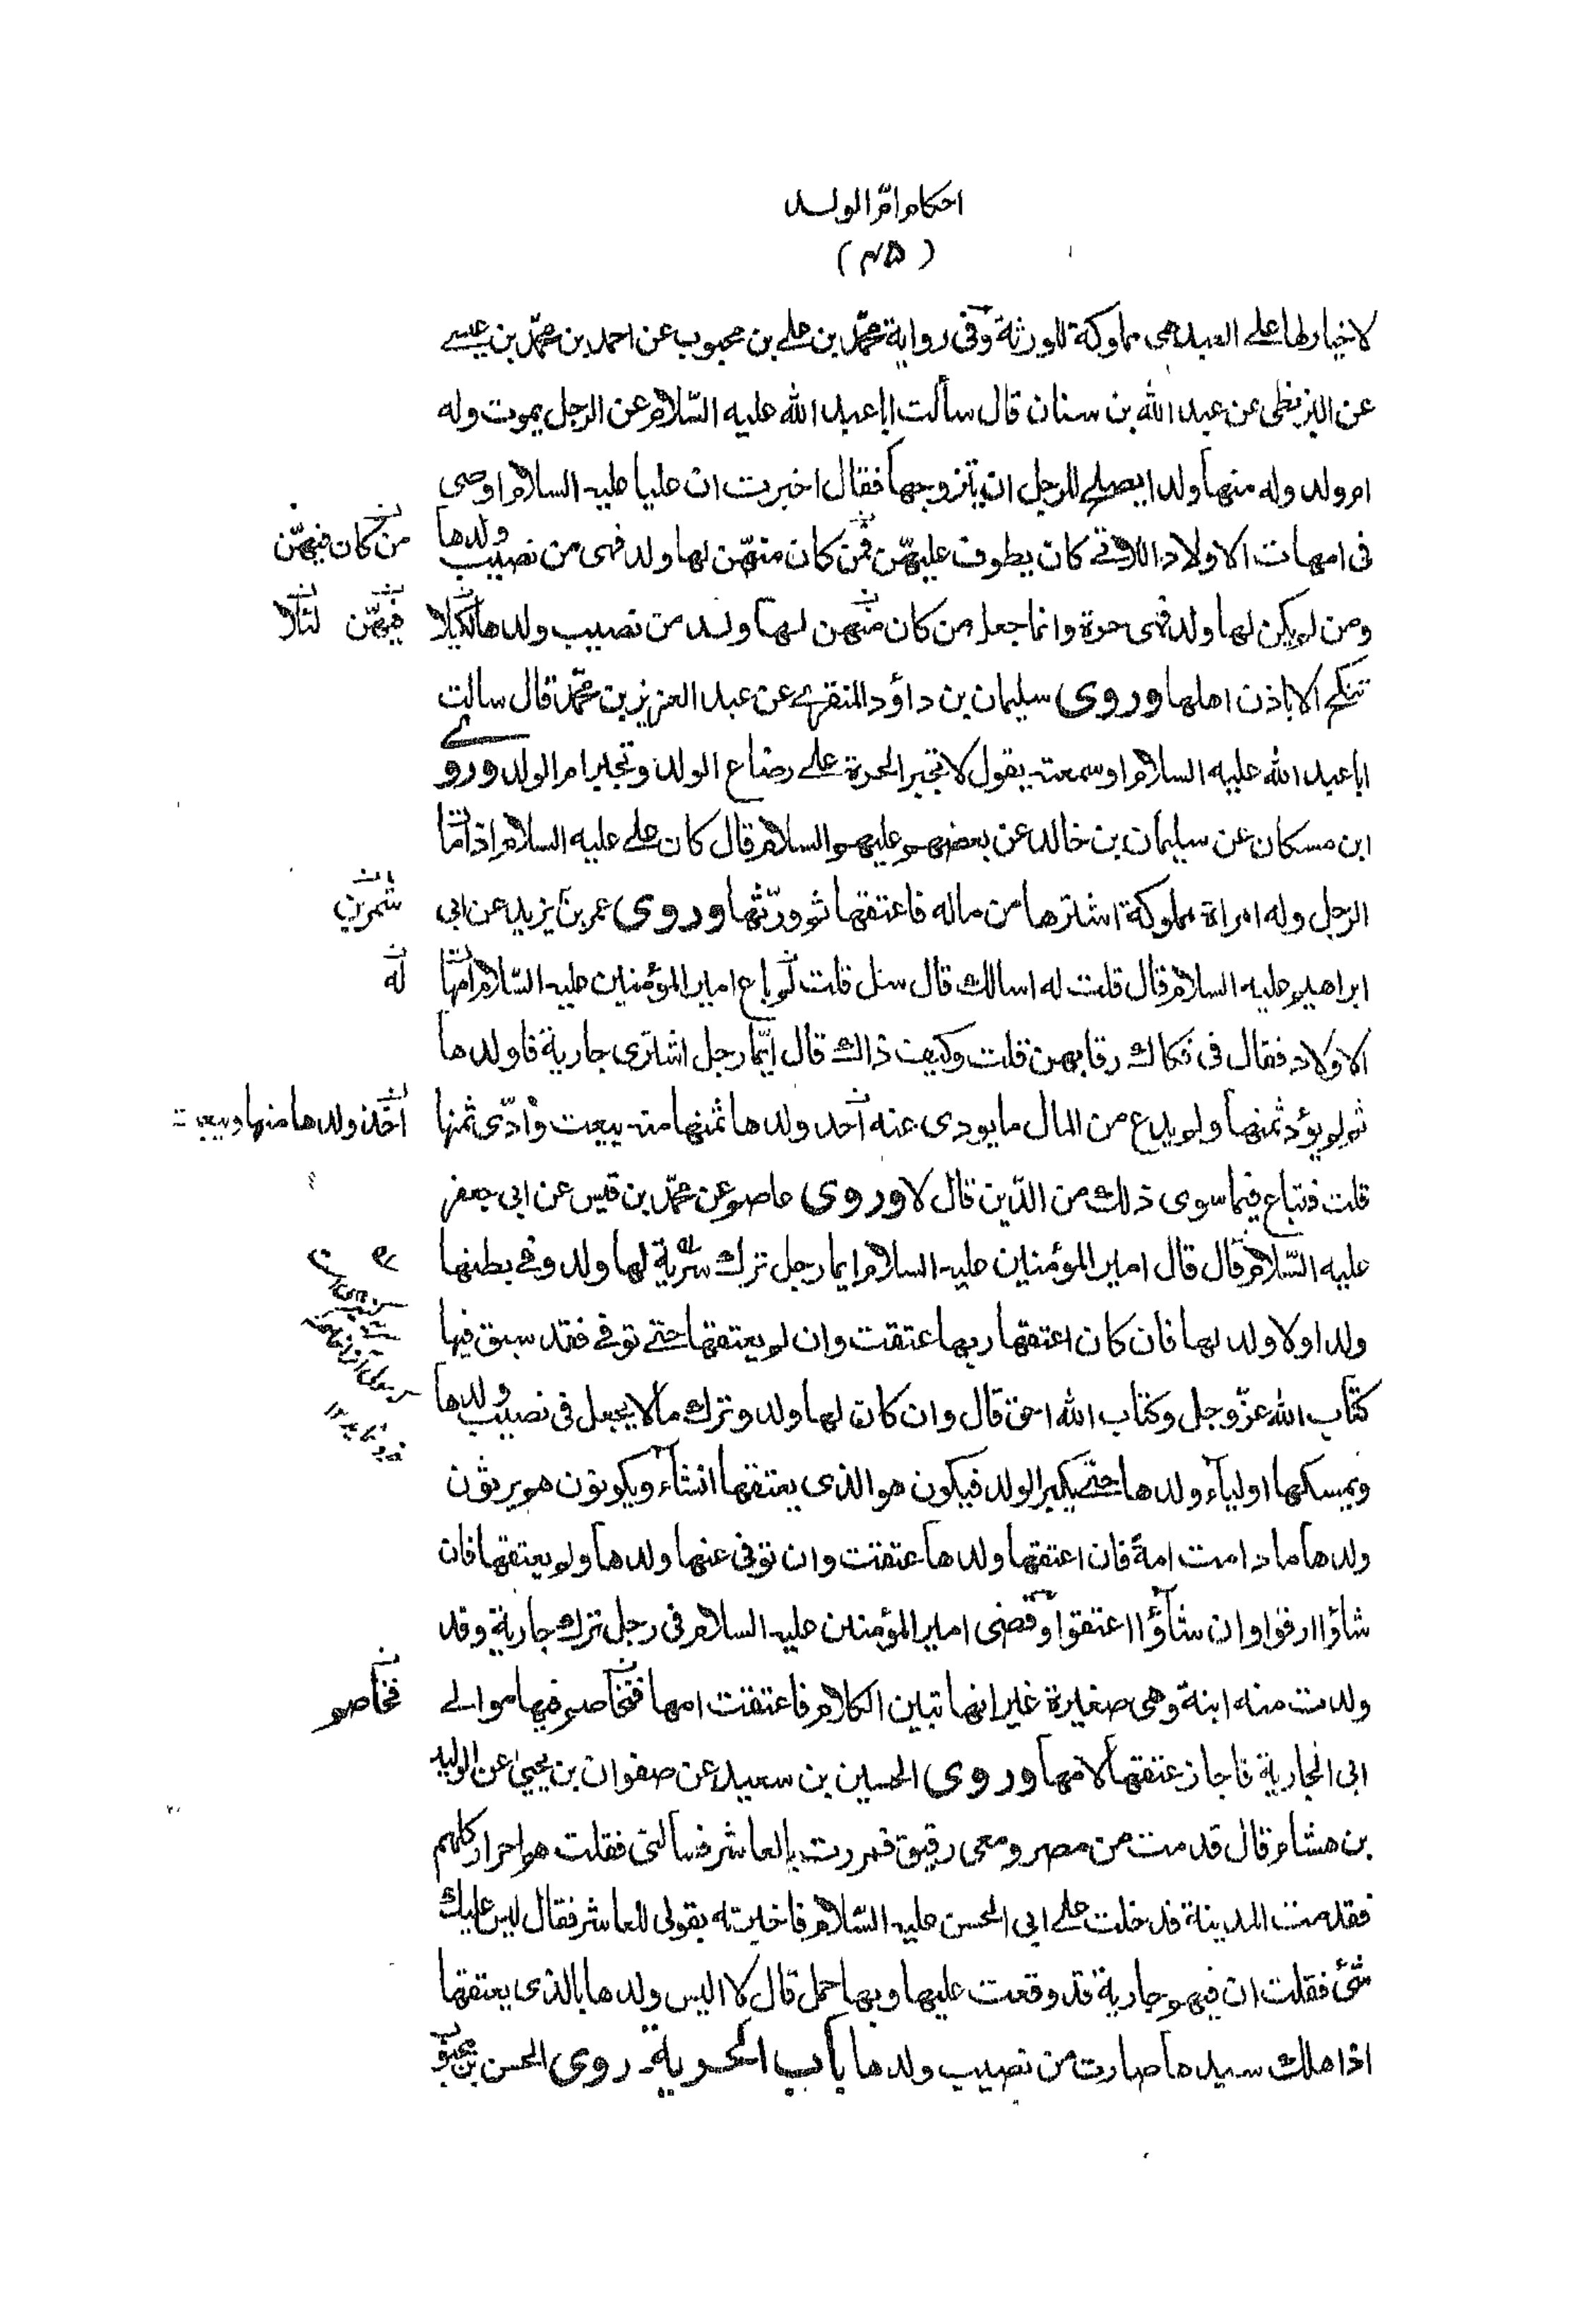 احكام امّ الولد
(۴۵)
لاخيار لها على العبد هى مملوكة للورثة وفى رواية محمّد بن على بن محبوب عن احمد بن محمّد بن عيسى
عن البزنطى عن عبد الله بن سنان قال سألت ابا عبد الله عليه السّلام عن الرجل يموت وله
ام ولد وله منها ولد ايصلح للرجل ان يتزوجها فقال اخبرت ان عليا عليه السلام اوصى
فى امهات الاولاد اللاتى كان يطوف عليهنّ فمن كان منهنّ لها ولد فهى من نصيب ولدها
من كان فيهنّ
ومن لم يكن لها ولد فهى حرة وانما جعل من كان منهن لها ولد من نصيب ولدها لكيلا
فيهنّ لئلا
تنكح الا باذن اهلها وروى سليمان بن داؤد المنقرى عن عبد العزيز بن محمّد قال سالت
ابا عبد الله عليه السلام او سمعته يقول لا تجبر الحرة على رضاع الولد وتجبر ام الولد وروى
ابن مسكان عن سليمان بن خالد عن بعضهم عليهم السلام قال كان على عليه السلام اذا مات
الرجل وله امراة مملوكة اشترها من ماله فاعتقها ثم ورّثها وروى عمر بن يزيد عن ابى
ابراهيم عليه السلام قال قلت له اسالك قال سل قلت لم باع امير المؤمنين عليه السّلام امهات
له
الاولاد فقال فى فكاك رقابهن قلت وكيف ذاك قال ايّما رجل اشترى جارية فاولدها
ثم لم يؤد ثمنها ولم يدع من المال ما يودى عنه اخذ ولدها ثمنها منه بيعت وادّى ثمنها
اخذ ولدها منها وبيعت
قلت فتباع فيما سوى ذلك من الدّين قال لا وروى عاصم عن محمّد بن قيس عن ابى جعفر
عليه السّلام قال قال امير المؤمنين عليه السلام ايما رجل ترك سرّية لها ولد وفى بطنها
ولد او لا ولد لها فان كان اعتقها ربها عتقت وان لم يعتقها حتى توفى فقد سبق فيها
كتاب الله عزّ وجل وكتاب الله احق قال وان كان لها ولد وترك مالا يجعل فى نصيب ولدها
ويمسكها اولياء ولدها حتى يكبر الولد فيكون هو الذى يعتقها انشاء ويكونون هم يرثون
ولدها ما دامت امة فان اعتقها ولدها عتقت وان توفى عنها ولدها ولم يعتقها فان
شاؤا ارقوا وان شاؤا اعتقوا وقضى امير المؤمنين عليه السلام فى رجل ترك جارية وقد
ولدت منه ابنة وهى صغيرة غير انها تبين الكلام فاعتقت امها فتخاصم فيها موالى
فخاصم
ابى الجارية فاجاز عتقها لامها وروى الحسين بن سعيد عن صفوان بن يحيى عن الوليد
بن هشام قال قدمت من مصر ومعى رقيق فمررت بالعاشر فسالنى فقلت هم احرار كلهم
فقدمت المدينة فدخلت على ابى الحسن عليه السّلام فاخبرته بقولى للعاشر فقال ليس عليك
شئ فقلت ان فيهم جارية قد وقعت عليها وبها حمل قال لا اليس ولدها بالذى يعتقها
اذا هلك سيدها صارت من نصيب ولدها باب الحرية روى الحسن بن محبوب